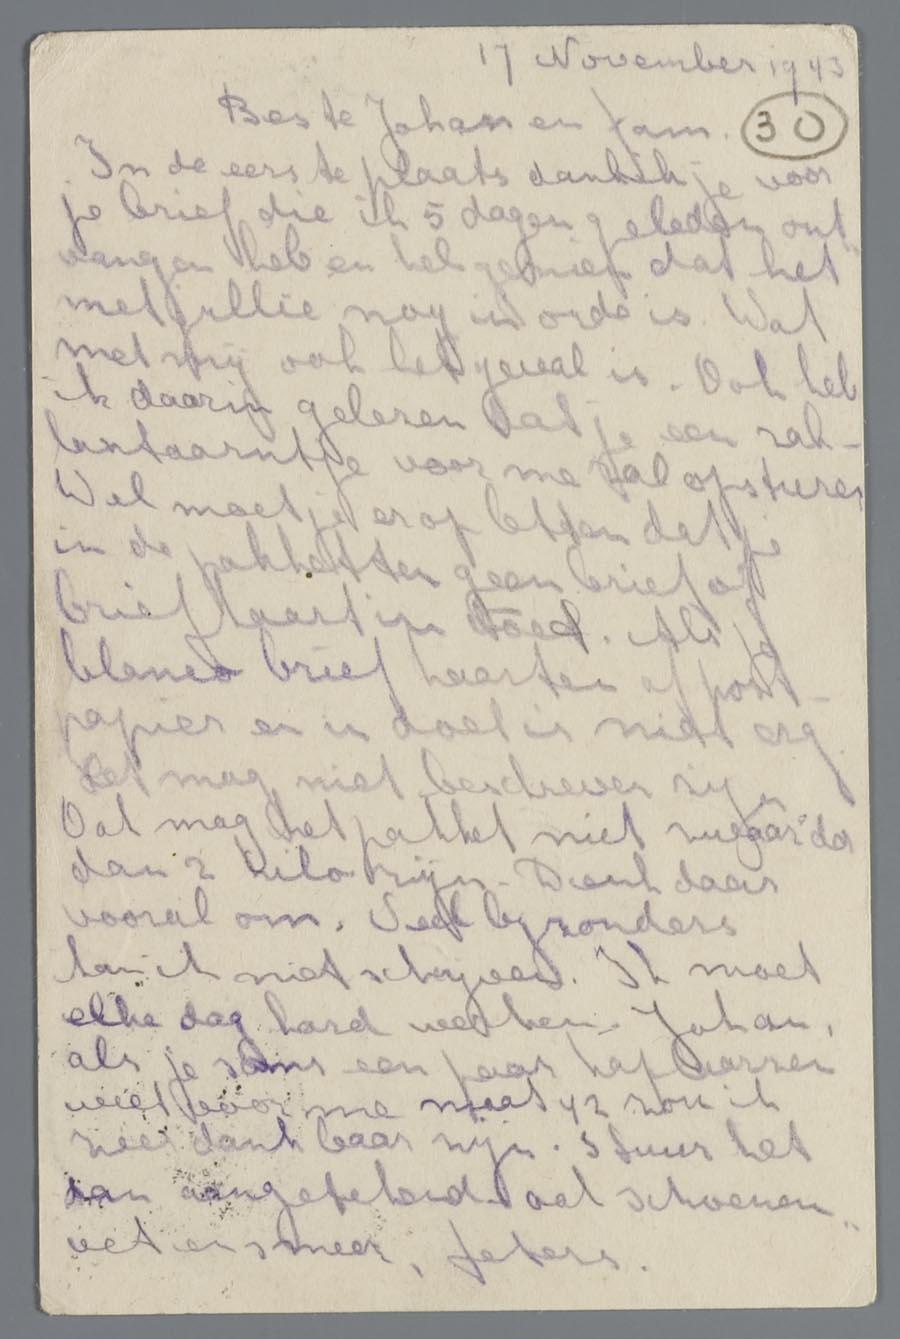 17 November 1943
Beste Johan en fam. 30
In de eerste plaats dank ik je voor
je brief die ik 5 dagen geleden ont
vangen heb en heb gelezen dat het
met jullie nog in orde is. Wat
met mij ook het geval is. Ook heb
ik daarin gelezen dat je een zak-
lantaarntje voor me zal opsturen
Wel moet je erop letten dat je
in de pakketten geen brief of
briefkaart in doed. Als je
blanco briefkaarten of post-
papier er in doet is niet erg.
Het mag niet beschreven zijn
Ook mag het pakket niet zwaarder
dan 2 kilo zijn. Denk daar
vooral om. Veel byzonders
kan ik niet schrijven. Ik moet
elke dag hard werken. Johan,
als je soms een paar kaplaarzen
weet voor me maat 42 zou ik
zeer dankbaar zijn. Stuur het
dan aangetekend ook schoenen
vet en smeer, feters.